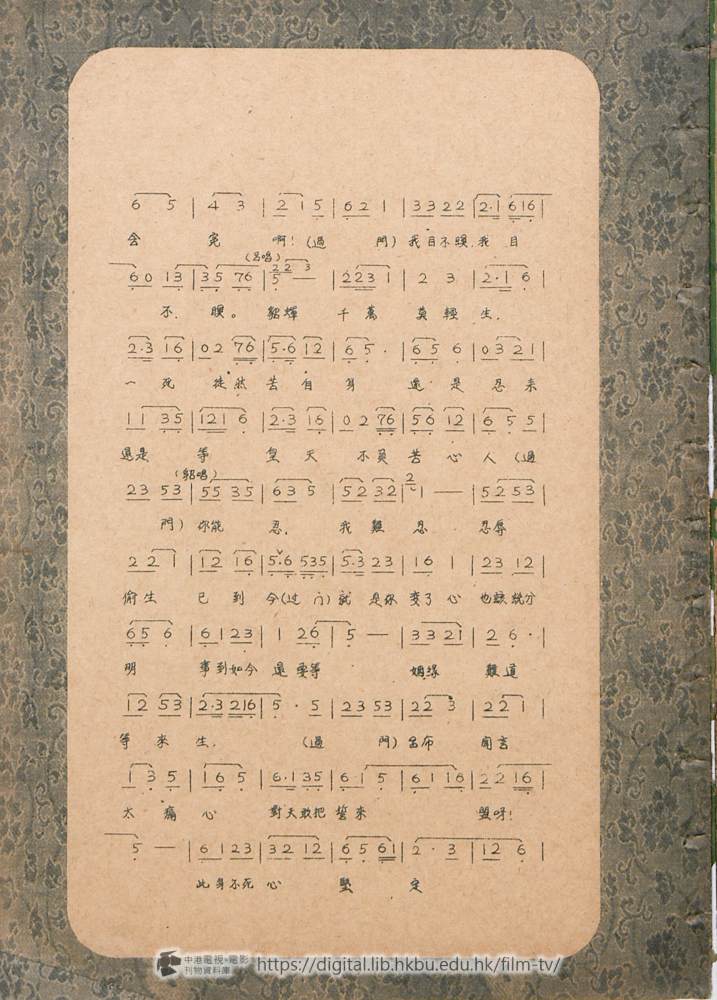 6 5 | 4 3 | 2 1 5 | 6 2 1 | 3 3 2 2 | 2·1 6 1 6 |
含 寃 啊! (過 門) 我目不瞑. 我 目
(呂唱)
6 0 1 3 | 3 5 7 6 | 2 2 3 5 — | 2 2 3 1 | 2 3 | 2·1 6 |
不. 瞑。 貂蟬 千萬 莫輕生.
2·3 1 6 | 0 2 7 6 | 5·6 1 2 | 6 5 · | 6 5 6 | 0 3 2 1 |
一 死 徒然苦自身 還 是 忍來
1 1 3 5 | 1 2 1 6 | 2·3 1 6 | 0 2 7 6 | 5 6 1 2 | 6 5 5 |
還是 等 皇天 不負苦心人 (過
(貂唱)
2 3 5 3 | 5 5 3 5 | 6 3 5 | 5 2 3 2 | 2 1 — — | 5 2 5 3 |
門) 你能 忍. 我難忍. 忍辱
2 2 1 | 1 2 1 6 | 5·6 5 3 5 | 5·3 2 3 | 1 6 1 | 2 3 1 2 |
偷生 已到 今(过 门) 就是你变了心 也該說分
6 5 6 | 6 1 2 3 | 1 2 6 | 5 — | 3 3 2 1 | 2 6 · |
明 事到如今還要等 姻缘 難道
1 2 5 3 | 2·3 2 1 6 | 5 · 5 | 2 3 5 3 | 2 2 3 | 2 2 1 |
等來生. (過 門) 呂布 聞言
1 3 5 | 1 6 5 | 6·1 3 5 | 6 1 5 | 6 1 1 6 | 2 2 1 6 |
太痛心 對天敢把誓來 盟呀!
5 — | 6 1 2 3 | 3 2 1 2 | 6 5 6 1 | 2 · 3 | 1 2 6 |
此身不死心 堅 定
中港電視·電影
刊物資料庫
https://digital.lib.hkbu.edu.hk/film-tv/